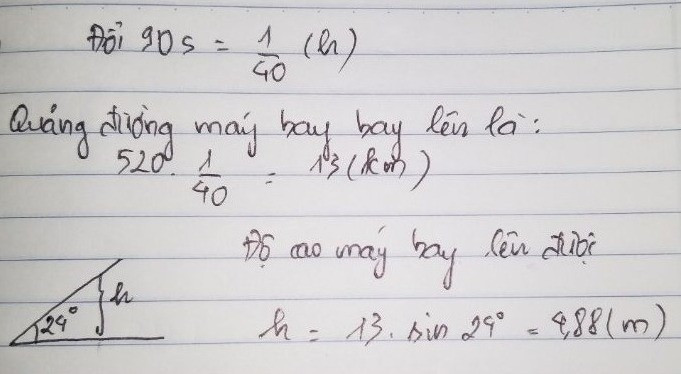 Đổi 90s = 1/40 (h)
Quảng đường máy bay bay lên là:
520. 1/40 = 13 (km)
Độ cao máy bay lên được
h = 13. sin 24° = 4,88 (m)
24° h